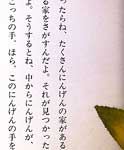 ったらね、たくさんにんげんの家がある
る家をさがすんだよ。それが見つかった
よ。そうするとね、中からにんげんが、
こっちの手、ほら、このにんげんの手を